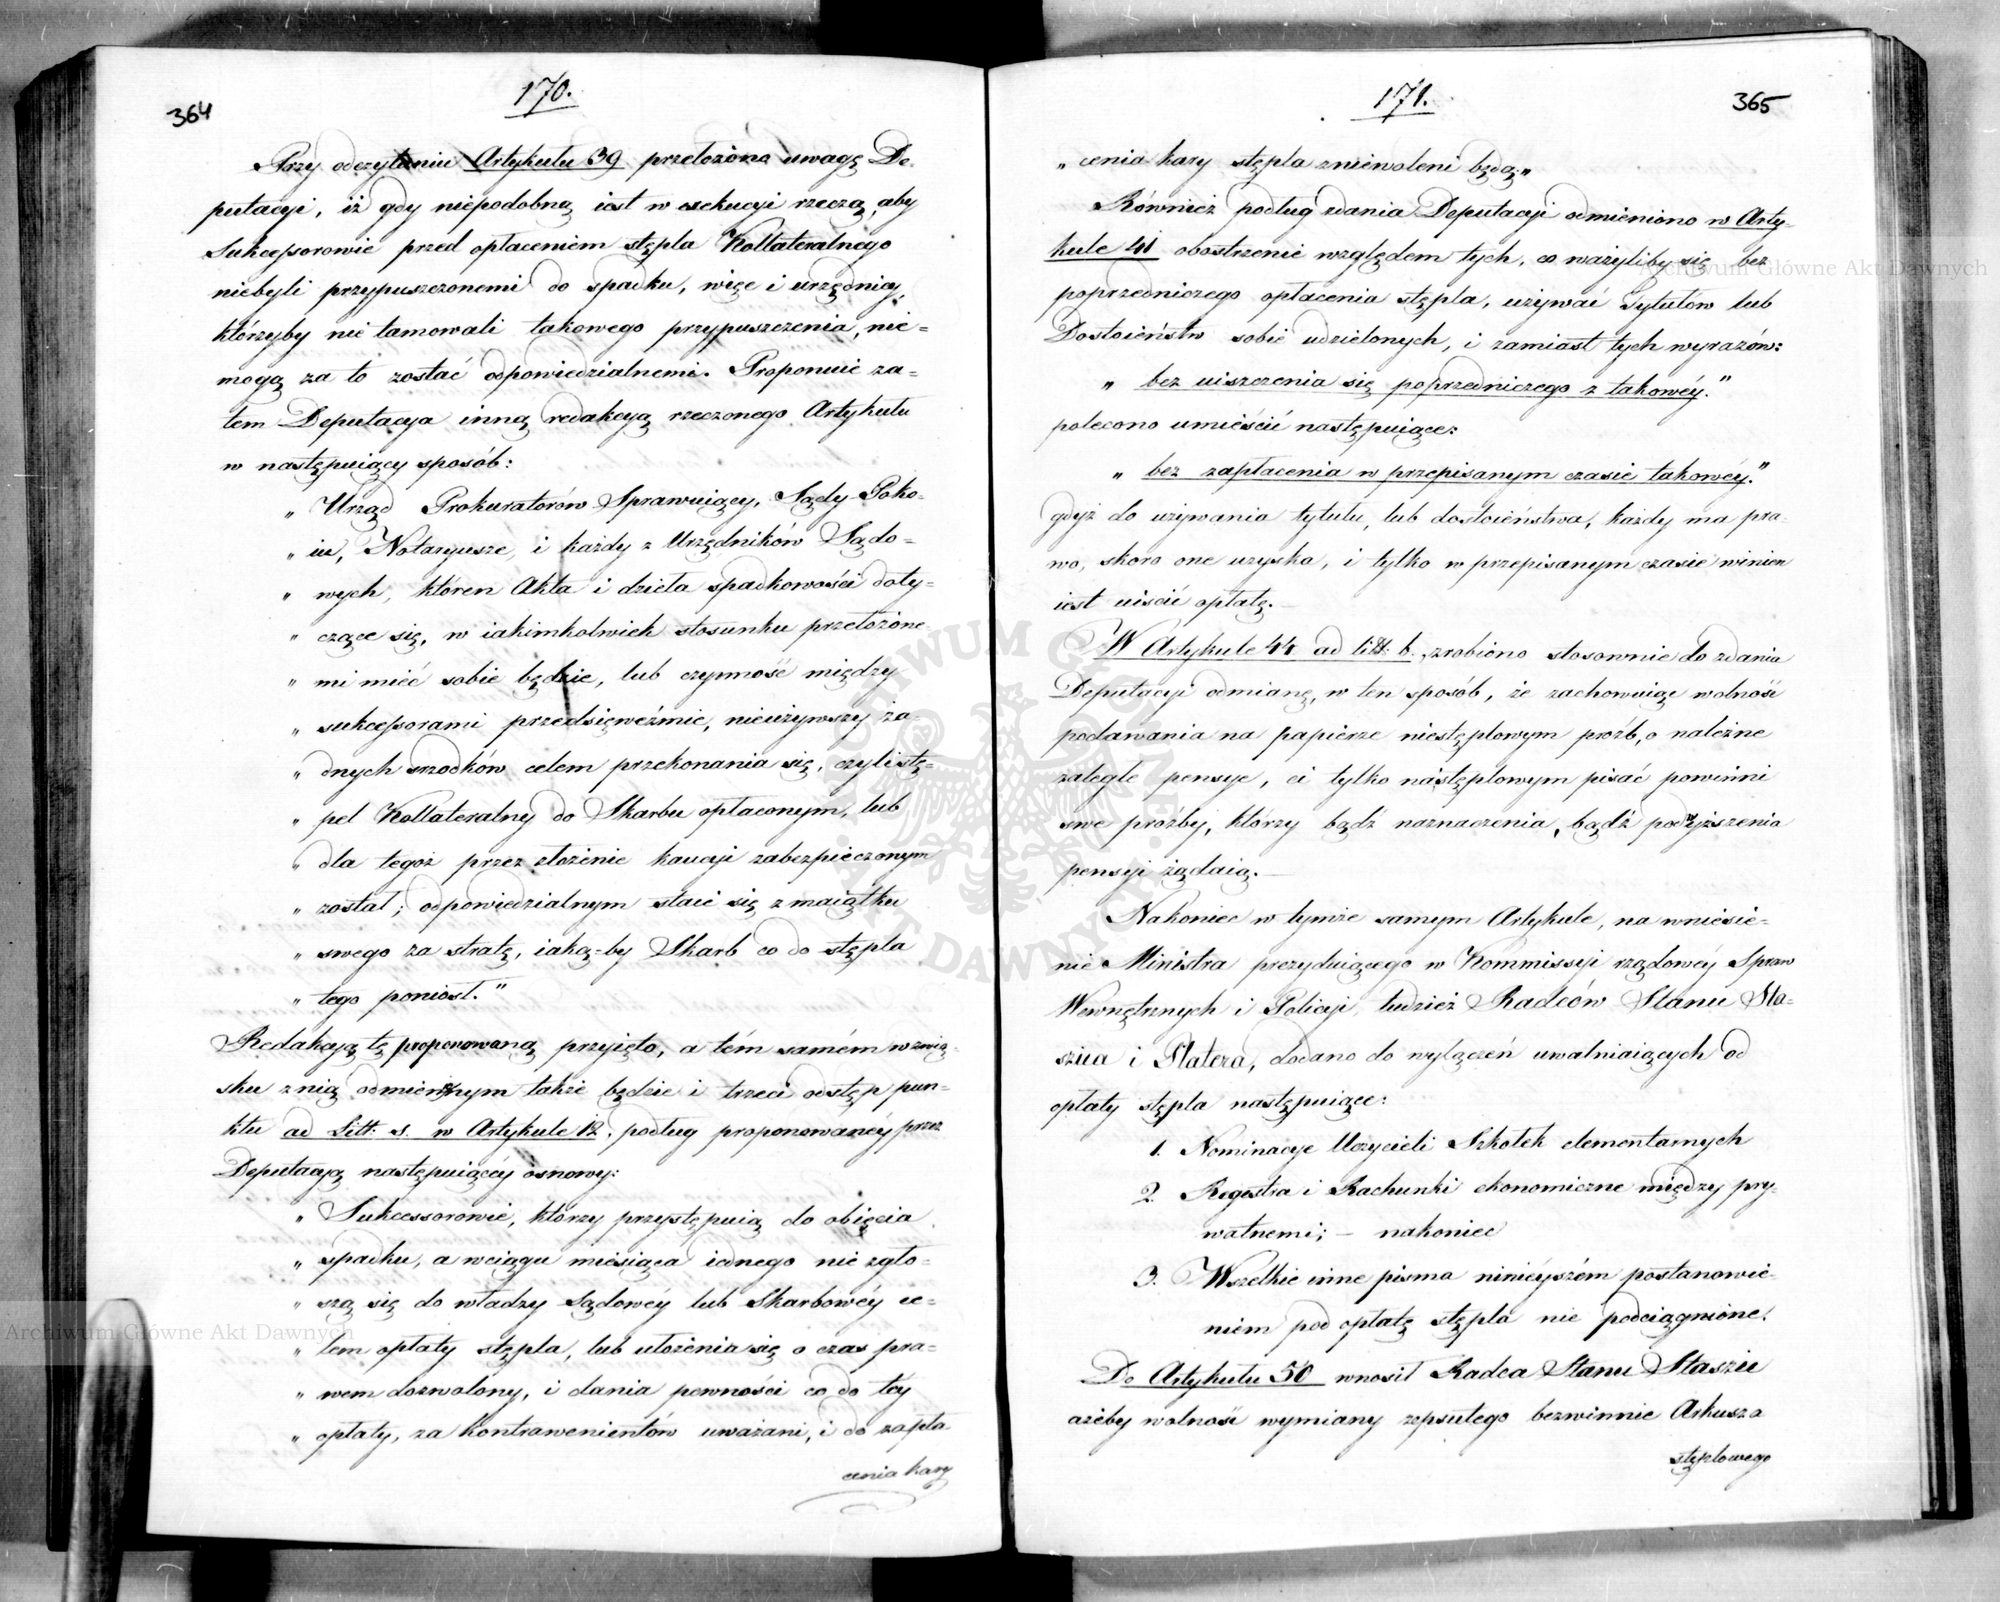 364
170.
Przy odczytaniu Artykułu 39 przełożono uwagę De-
putacyi, iż gdy niepodobną iest w exekucyi rzeczą, aby
Sukcessorowie przed opłaceniem stępla Kollateralnego
niebyli przypuszczonemi do spadku, więc i urzędnicy,
którzyby nie tamowali takowego przypuszczenia, nie=
mogą za to zostać odpowiedzialnemi. Proponuie za=
tem Deputacya inną redakcyą rzeczonego Artykułu
w następuiący sposób:
„ Urząd Prokuratorów Sprawuiący, Sądy Poko-
„ iu, Notaryusze, i każdy z Urzędników Sądo=
„ wych, któren Akta i dzieła spadkowości doty-
„ czące się, w iakimkolwiek stosunku przełożone-
„ mi mieć sobie będzie, lub czynność między
„ sukcessorami przedsięweźmie, nieużywszy ża-
„ dnych srzodków celem przekonania się, czyli stę-
„ pel Kollateralny do Skarbu opłaconym, lub
„ dla tegoż przez złożenie kaucyi zabezpieczonym
„ został; odpowiedzialnym staie się z maiątku
„ swego za stratę, iaką=by Skarb co do stępla
„ tego poniosł.”
Redakcyą tę proponowaną przyięto, a tém samém w zwią-
sku z nią odmiennym także będzie i trzeci odstęp pun-
ktu ad Litt: s. w Artykule 12, podług proponowanéy przez
Deputacyą następuiącéy osnowy:
„ Sukcessorowie, którzy przystępuią do obięcia
„ spadku, a wciągu miesiąca iednego nie zgło-
„ szą się do władzy Sądowéy lub Skarbowéy ce-
„ lem opłaty stępla, lub ułożenia się o czas pra-
„ wem dozwolony, i dania pewności co do téy
„ opłaty, za kontrawenientów uważani, i do zapła
cenia kary
365
171.
„ cenia kary stępla zniewoleni będą;„
Również podług zdania Deputacyi odmieniono w Arty-
kule 41 obostrzenie względem tych, co ważyliby się bez
poprzedniczego opłacenia stępla, używać Tytułów lub
Dostoieństw sobie udzielonych, i zamiast tych wyrazów:
„ bez uiszczenia się poprzedniczego z takowéy.”
polecono umieścić następuiące:
„ bez zapłacenia w przepisanym czasie takowéy.”
gdyż do używania tytułu, lub dostoieństwa, każdy ma pra-
wo, skoro one uzyska, i tylko w przepisanym czasie winien
iest uiścić opłatę.
W Artykule 44 ad litt: b. zrobiono stosownie do zdania
Deputacyi odmianę, w ten sposób, że zachowuiąc wolność
podawania na papierze niestęplowym próźb, o należne
zaległe pensye, ci tylko na stęplowym pisać powinni
swe próźby, którzy bądź naznaczenia, bądź podwyższenia
pensyi żądaią.
Nakoniec w tymże samym Artykule, na wniesie-
nie Ministra prezyduiącego w Kommissyi rządowéy Spraw
Wewnętrznych i Policyi, tudzież Radców Stanu Sta-
szica i Platera, dodano do wyłączeń uwalniaiących od
opłaty stępla następuiące:
1. Nominacye Uczycieli Szkołek elementarnych
2. Regestra i Rachunki ekonomiczne między pry-
watnemi; — nakoniec
3. Wszelkie inne pisma ninieyszém postanowie-
niem pod opłatę stępla nie podciągnione.
Do Artykułu 50 wnosił Radca Stanu Staszic
ażeby wolność wymiany zepsutego bezwinnie Arkusza
stęplowego
Archiwum Główne Akt Dawnych
Archiwum Główne Akt Dawnych
ARCHIWUM GŁÓWNE AKT DAWNYCH